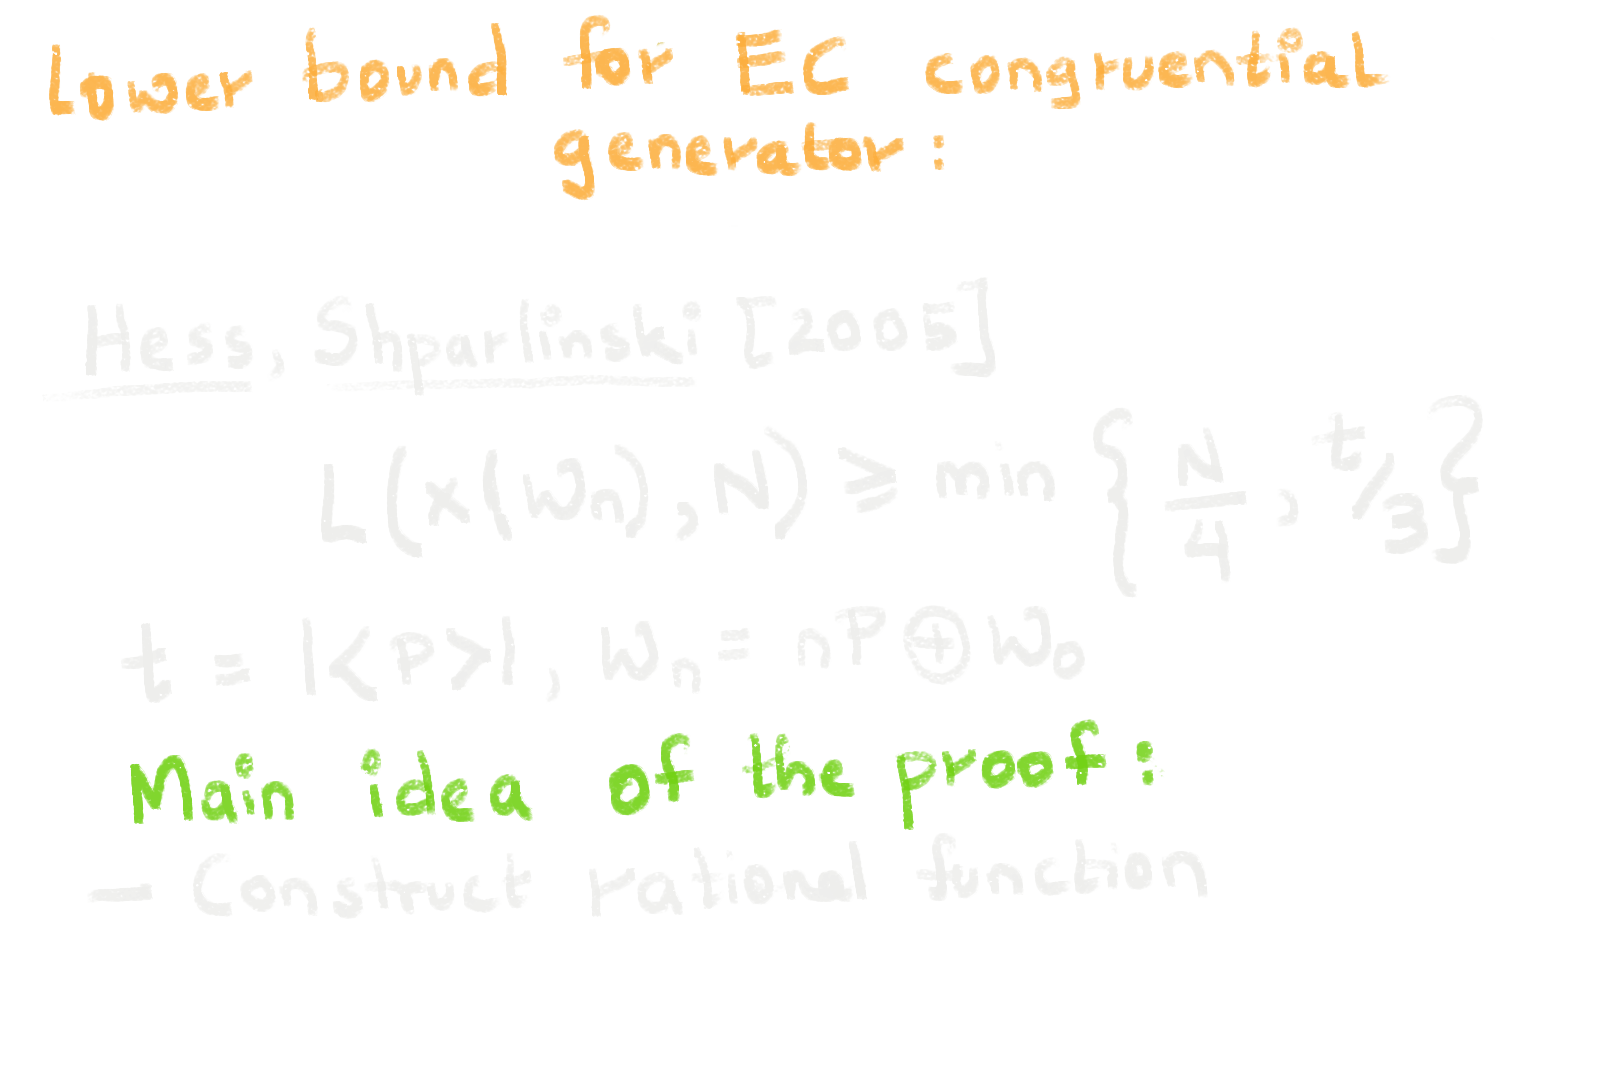 Lower bound for EC congruential
generator:
Hess, Shparlinski [2005]
L(x(Wn), N) ⩾ min { N/4, t/3 }
t = |<P>|, Wn = nP ⊕ W0
Main idea of the proof:
- Construct rational function